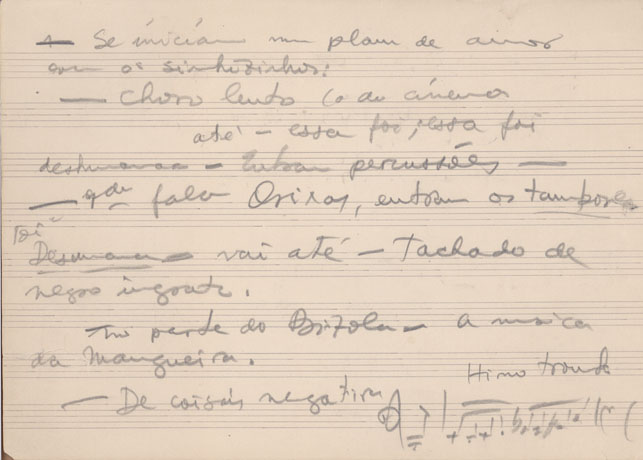 — Se iniciam num plano de amor
com os sinhozinhos:
— Choro lento (o do cinema
até — essa foi, essa foi
desumana — Entram percussões —
— qdo fala Orixás, entram os tambores
foi
Desumana vai até — tachado de
negro ingrato.
— na parte do Brizola — a musica
da Mangueira.
Hino
— De coisas negativas